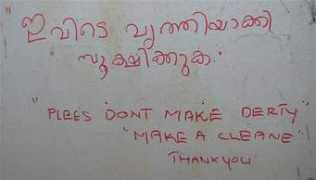 " ഇവിടെ വൃത്തിയാക്കി
സൂക്ഷിക്കുക."
"PLEES DONT MAKE DERTY"
"MAKE A CLEANE"
THANKYOU